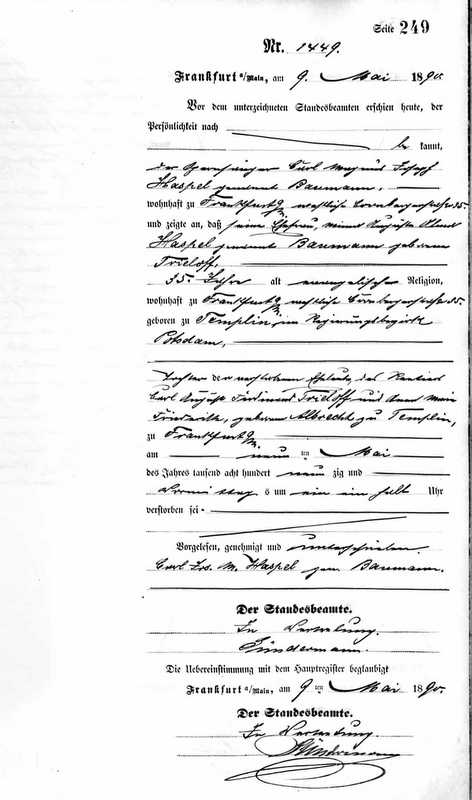 Seite 249
Nr. 1449.
Frankfurt a/Main, am 9. Mai 1890.
Vor dem unterzeichneten Standesbeamten erschien heute, der
Persönlichkeit nach
be kannt,
der Opernsänger Carl Magnus Joseph
Haspel genannt Baumann,
wohnhaft zu Frankfurt a/M,
und zeigte an, daß seine Ehefrau, Auguste
Haspel genannt Baumann geborene
Trieloff,
35 Jahre alt evangelischer Religion,
wohnhaft zu Frankfurt a/M,
geboren zu Templin, im Regierungsbezirk
Potsdam,
Tochter der verstorbenen Eheleute, des Rentiers
Carl August Ferdinand Trieloff und Anna Marie
Friederike, geborene Albrecht, zu Templin,
zu Frankfurt a/M.
am neun ten Mai
des Jahres tausend acht hundert neun zig und
Vormittags um ein ein halb Uhr
verstorben sei
Vorgelesen, genehmigt und unterschrieben.
Carl Jos. M. Haspel gen. Baumann.
Der Standesbeamte.
In Vertretung.
Die Uebereinstimmung mit dem Hauptregister beglaubigt
Frankfurt a/Main, am 9ten Mai 1890.
Der Standesbeamte.
In Vertretung.